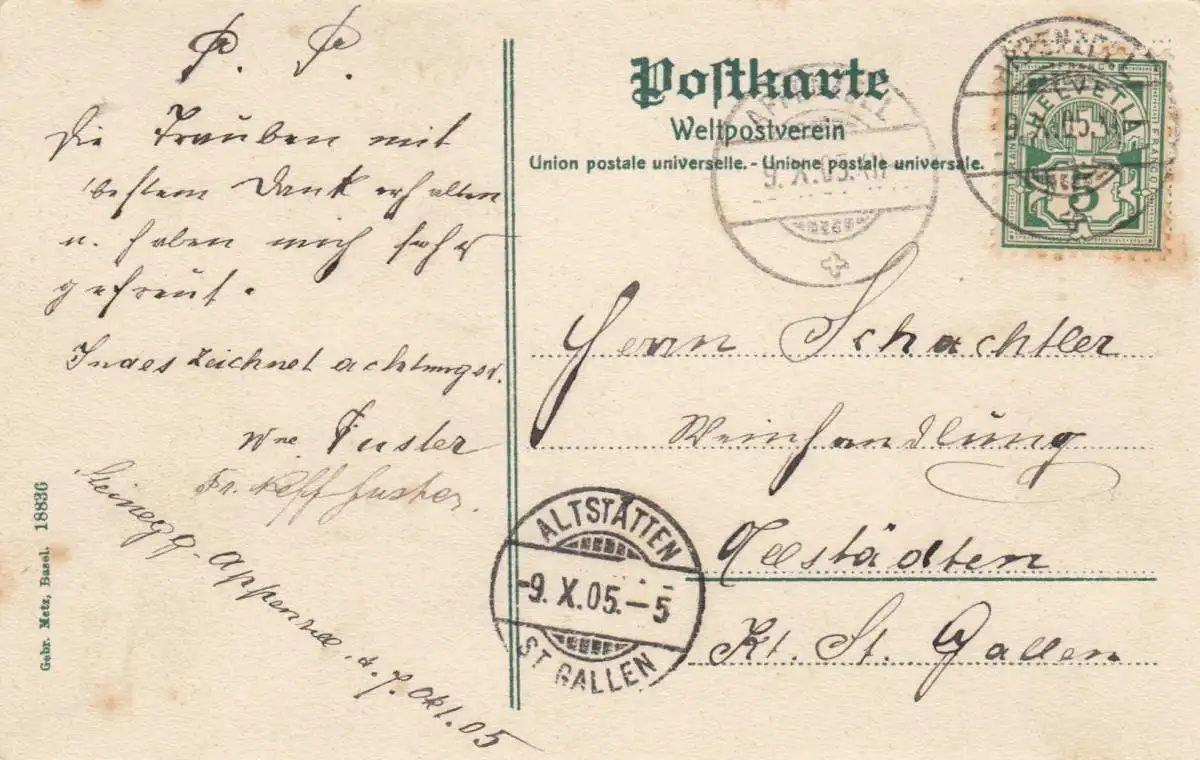 P. P.
Die Trauben mit
bestem Dank erhalten
u. haben mich sehr
gefreut.
Indes zeichnet achtungsv.
Wwe Fuster
Fr. Neff Fuster.
Steinegg-Appenzell. d. 9. Okt. 05
Gebr. Metz, Basel. 18836
Postkarte
Weltpostverein
Union postale universelle. - Unione postale universale.
APPENZELL
9. X. 05. XII
APPENZELL
9. X. 05.
FRANCO
HELVETIA
5
Herrn Schachtler
Weinhandlung
Altstädten
Kt. St. Gallen
ALTSTÄTTEN
-9. X. 05. - 5
ST GALLEN